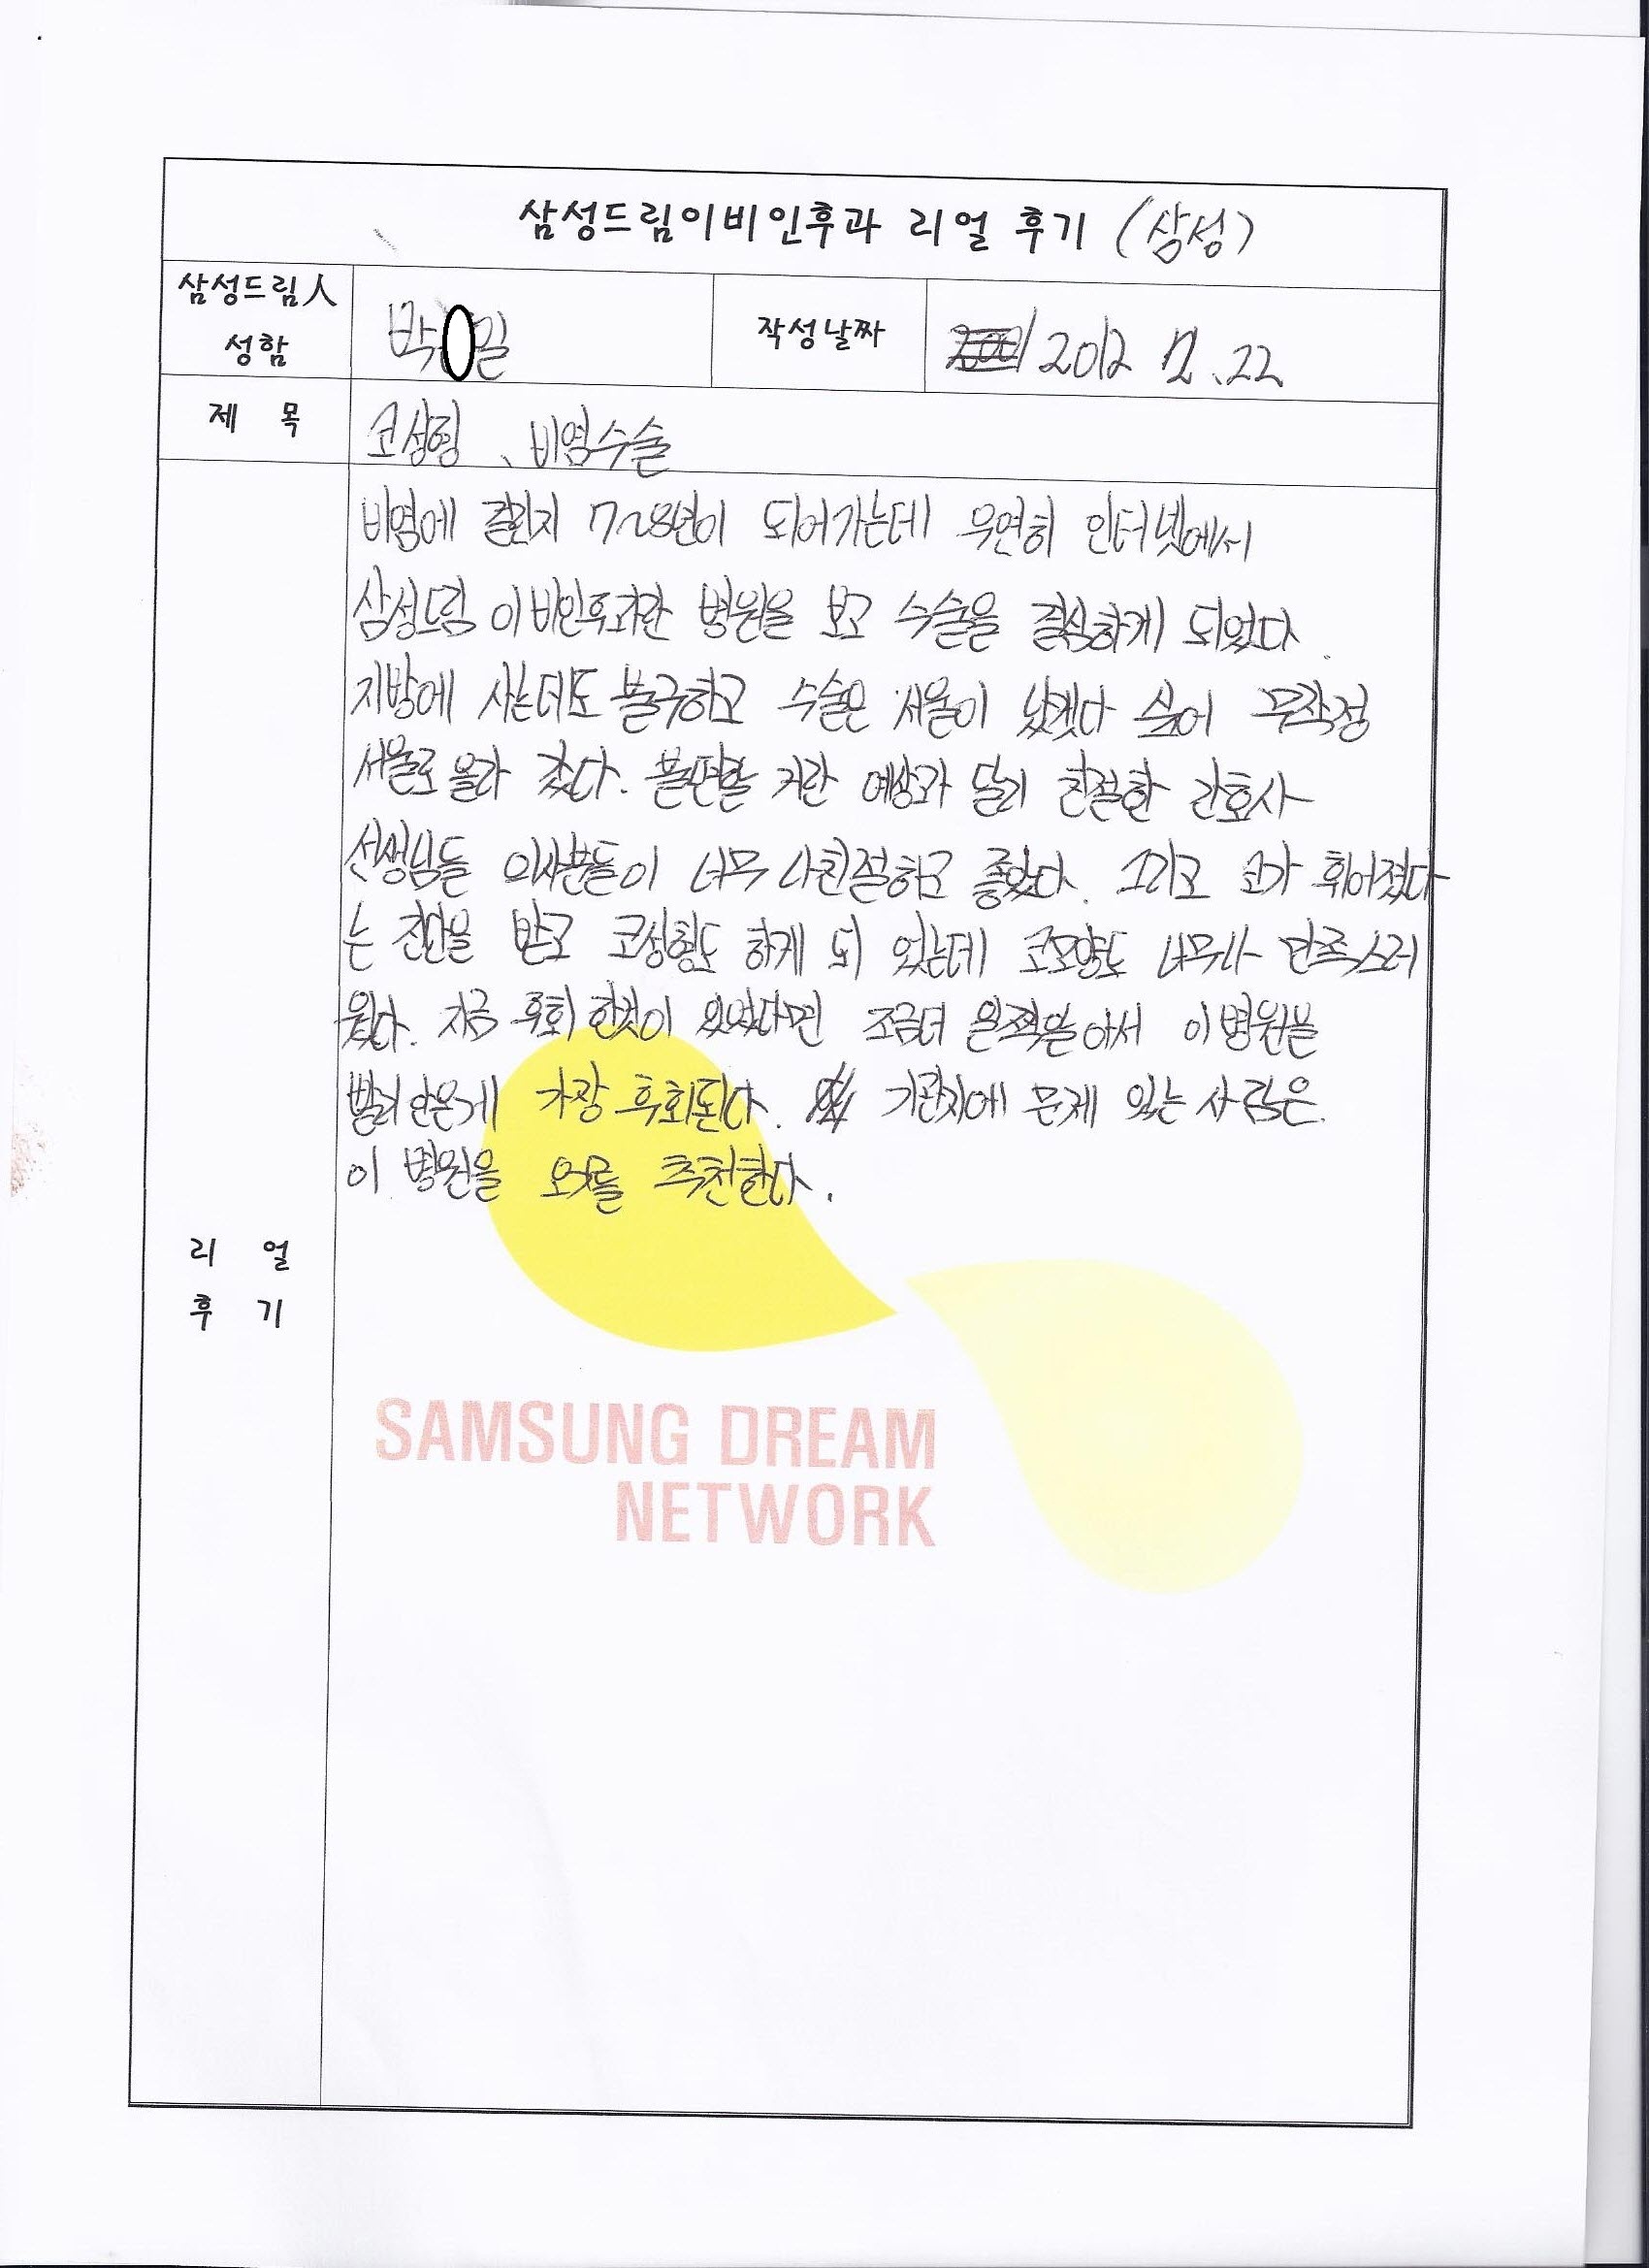 삼성드림이비인후과 리얼 후기 (삼성)
삼성드림人
성함
박 일
작성날짜
2012 12.22
제 목
코성형 、비염수술
비염에 걸린지 7~8년이 되어가는데 우연히 인터넷에서
삼성드림 이비인후과란 병원을 보고 수술을 결심하게 되었다.
지방에 사는데도 불구하고 수술은 서울이 낫겠다 싶어 무작정
서울로 올라 갔다. 불편할 거란 예상과 달리 친절한 간호사
선생님들 의사분들이 너무 나친절하고 좋았다. 그리고 코가 휘어졌다
는 진단을 받고 코성형도 하게 되 었는데 코모양도 너무나 만족스러
웠다. 지금 후회 한것이 있었다면 조금더 일찍알아서 이병원을
빨리안온게 가장 후회된다. 기관지에 문제 있는 사람은.
이 병원을 오기를 추천한다.
리 얼
후 기
SAMSUNG DREAM
NETWORK